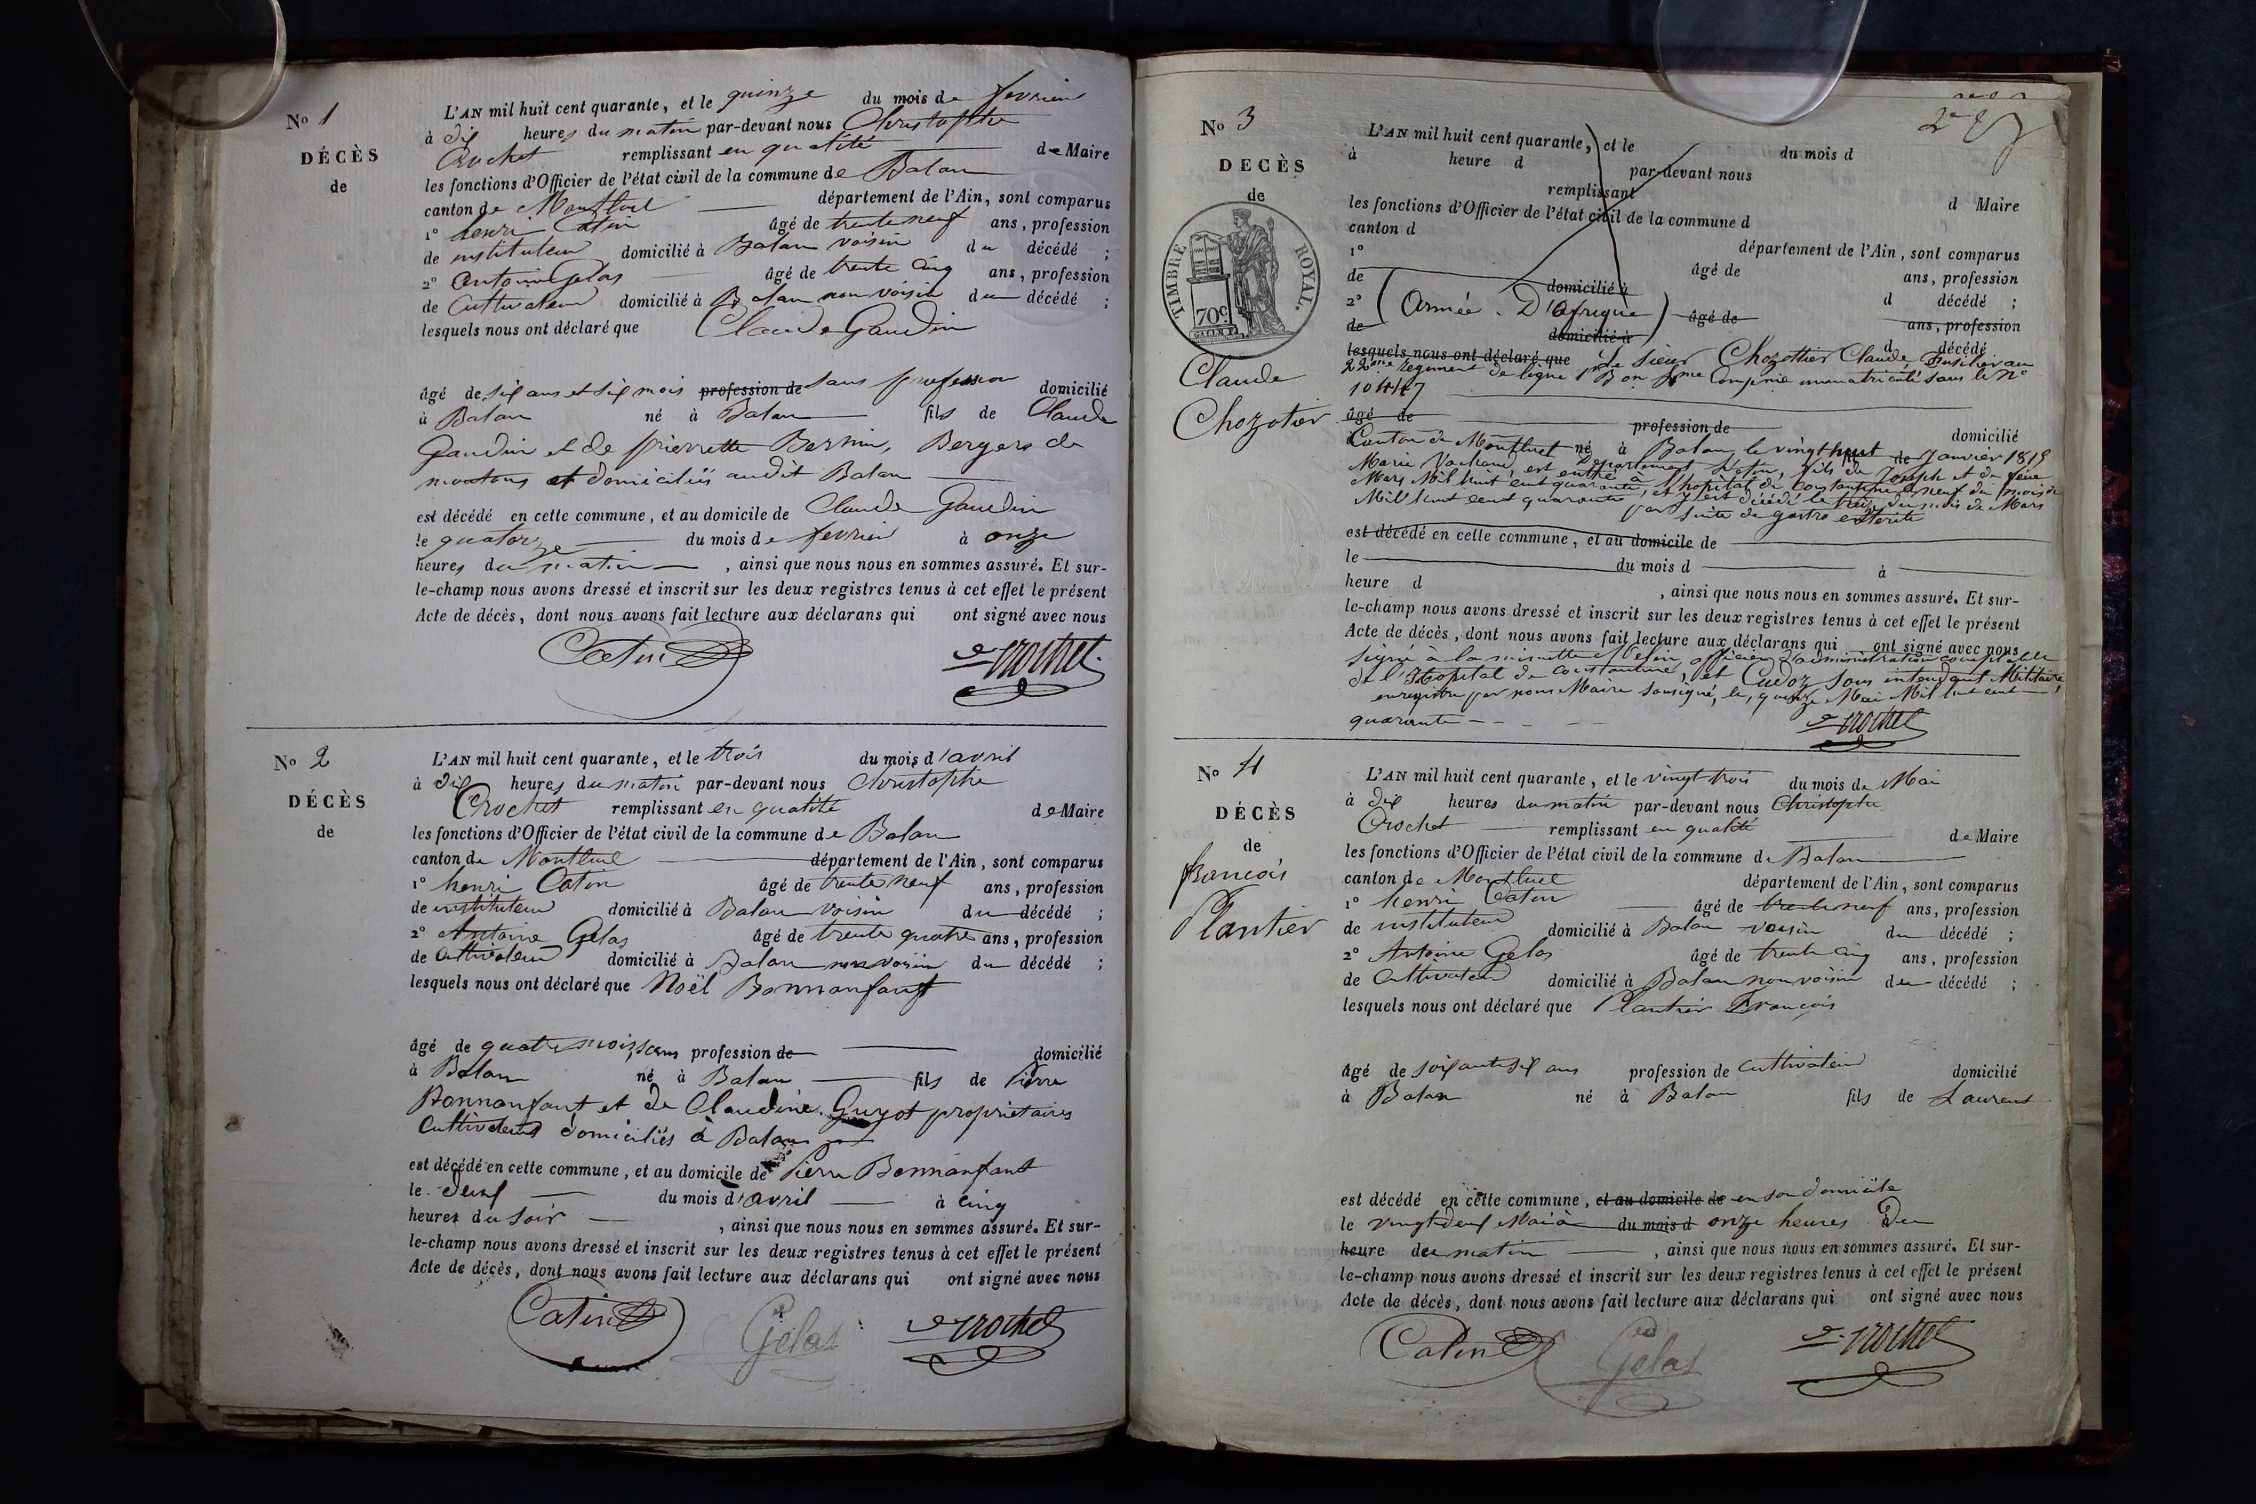 No 1
DÉCÈS
de
L'AN mil huit cent quarante, et le quinze du mois de fevrier
à dix heures du matin par-devant nous Christophe
Crochet remplissant en qualité de Maire
les fonctions d'Officier de l'état civil de la commune de Balan
canton de Montluel département de l'Ain, sont comparus
1° henri Catin âgé de trente neuf ans, profession
de instituteur domicilié à Balan voisin du décédé ;
2° antoine Gelas âgé de trente cinq ans, profession
de Cultivateur domicilié à Balan non voisin du décédé ;
lesquels nous ont déclaré que Claude Gaudin
âgé de six ans et six mois profession de sans profession domicilié
à Balan né à Balan fils de Claude
Gaudin et de pierrette Bernin, Bergers de
moutons et domiciliés audit Balan
est décédé en cette commune, et au domicile de Claude Gaudin
le quatorze du mois de fevrier à onze
heures du matin , ainsi que nous nous en sommes assuré. Et sur-
le-champ nous avons dressé et inscrit sur les deux registres tenus à cet effet le présent
Acte de décès, dont nous avons fait lecture aux déclarans qui ont signé avec nous
Catin Crochet
No 2
DÉCÈS
de
L'AN mil huit cent quarante, et le trois du mois d'avril
à dix heures du matin par-devant nous Christophe
Crochet remplissant en qualité de Maire
les fonctions d'Officier de l'état civil de la commune de Balan
canton de Montluel département de l'Ain, sont comparus
1° henri Catin âgé de trente neuf ans, profession
de instituteur domicilié à Balan voisin du décédé ;
2° Antoine Gelas âgé de trente quatre ans, profession
de Cultivateur domicilié à Balan non voisin du décédé ;
lesquels nous ont déclaré que Noël Bonnanfant
âgé de quatre mois, sans profession de domicilié
à Balan né à Balan fils de Pierre
Bonnanfant et de Claudine Guyot propriétaires
Cultivateurs domiciliés à Balan
est décédé en cette commune, et au domicile de Pierre Bonnanfant
le deux du mois d'avril à cinq
heures du soir , ainsi que nous nous en sommes assuré. Et sur-
le-champ nous avons dressé et inscrit sur les deux registres tenus à cet effet le présent
Acte de décès, dont nous avons fait lecture aux déclarans qui ont signé avec nous
Catin Gelas Crochet
No 3
DECÈS
de
TIMBRE ROYAL.
70c
Claude
Chozotier
L'AN mil huit cent quarante, et le du mois d
à heure d par-devant nous
remplissant d Maire
les fonctions d'Officier de l'état civil de la commune d
canton d département de l'Ain, sont comparus
1° âgé de ans, profession
de domicilié à d décédé ;
2° (Armée D'afrique) âgé de ans, profession
de domicilié à d décédé
lesquels nous ont déclaré que Le sieur Chozottier Claude, fusilier au
22ème regiment de ligne 1er Bon Compnie immatriculé sous le No
10447
âgé de profession de domicilié
Canton de Montluel né à Balan le vingt huit de Janvier 1818
département de l'ain, fils de Joseph et de feue
Marie Vachand, est entré à l'hopital de Constantine le neuf du mois de
Mars Mil huit cent quarante, et y est décédé le treize du mois de Mars
Mil huit cent quarante par suite de gastro entérite
est décédé en cette commune, et au domicile de
le du mois d à
heure d , ainsi que nous nous en sommes assuré. Et sur-
le-champ nous avons dressé et inscrit sur les deux registres tenus à cet effet le présent
Acte de décès, dont nous avons fait lecture aux déclarans qui ont signé avec nous
signé à la minutte officier d'administration comptable
de l'Hopital de Constantine, et Cudoz sous intendant Militaire,
enregistré par nous Maire sousigné, le, quinze Mai Mil huit cent
quarante
Crochet
No 4
DÉCÈS
de
françois
Plantier
L'AN mil huit cent quarante, et le vingt trois du mois de Mai
à dix heures du matin par-devant nous Christophe
Crochet remplissant en qualité de Maire
les fonctions d'Officier de l'état civil de la commune de Balan
canton de Montluel département de l'Ain, sont comparus
1° henri Catin âgé de trente neuf ans, profession
de instituteur domicilié à Balan voisin du décédé ;
2° Antoine Gelas âgé de trente cinq ans, profession
de Cultivateur domicilié à Balan non voisin du décédé ;
lesquels nous ont déclaré que Plantier François
âgé de soixante six ans profession de Cultivateur domicilié
à Balan né à Balan fils de Laurent
est décédé en cette commune, et au domicile de en son domicile
le vingt deux Mai à du mois d onze heures Du
heure du matin , ainsi que nous nous en sommes assuré. Et sur-
le-champ nous avons dressé et inscrit sur les deux registres tenus à cet effet le présent
Acte de décès, dont nous avons fait lecture aux déclarans qui ont signé avec nous
Catin Gelas Crochet